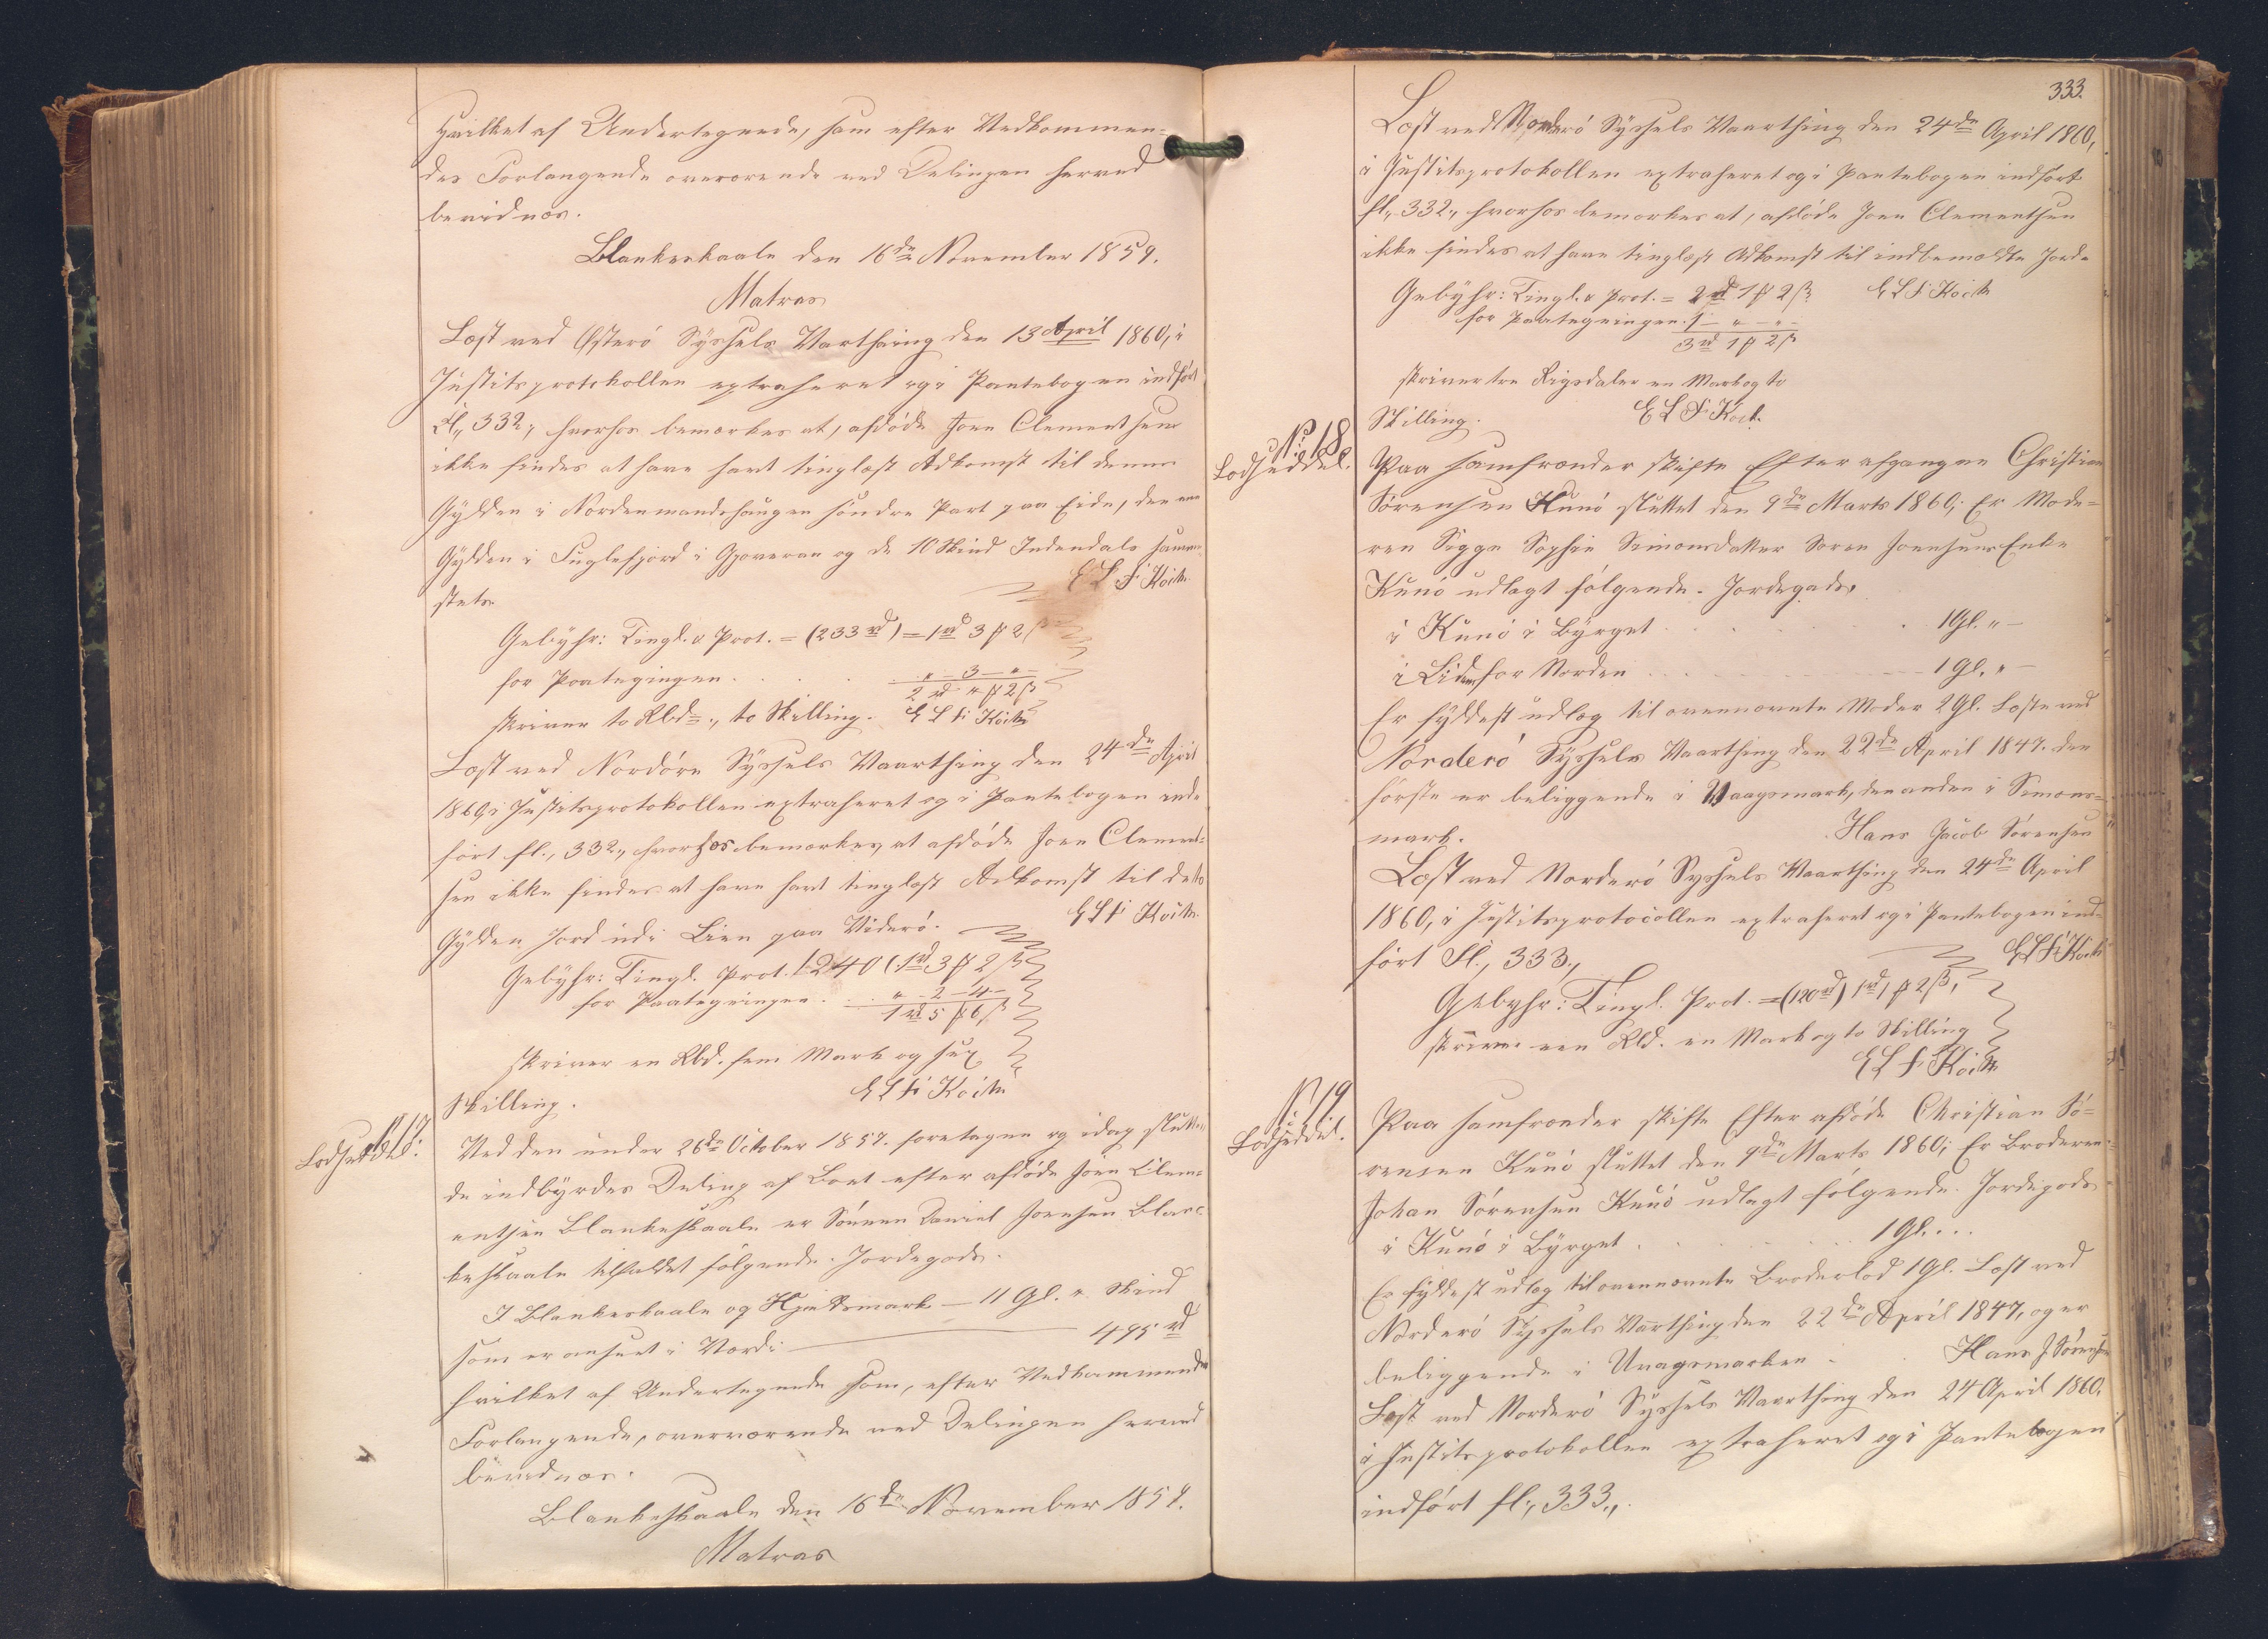 hvilket af Undertegnede, som efter Vedkommen=
des Forlangende overværende ved Delingen herved
bevidnes.
Blankeskaale den 16de November 1859.
Matras
Læst ved Østerö Syssels Varthing den 13 April 1860, i
Justitsprotokollen extraheret og i Pantebogen indført
Fl. 332., hvorhos bemærkes at, afdöde Joen Clementsen
ikke findes at have havt tinglæst Adkomst til denne
Gylden i Nordenmandehaugen söndre Part paa Eide, den ene
Gylden i Fuglefjord i Gjoveraa og de 10 Skind Indendals samme
stets.
E L F Koch.
Gebyhr: Tingl. o Prot. = (233 rd) = 1 rd 3 ₻ 2 ß
for Paategingen . . . " - 3 - " -
2 rd " ₻ 2 ß
skriver to Rbd., to Skilling. E L F Koch
Læst ved Nordöre Syssels Vaarthing den 24de April
1860, i Justitsprotokollen extraheret og i Pantebogen ind-
fört fl., 332., hvorhos bemærkes, at afdöde Joen Clement-
sen ikke findes at have havt tinglæst Adkomst til dette
Gylden Jord udi Lien paa Viderö.
E L F Koch.
Gebyhr: Tingl. Prot. /: 240 (. 1 rd 3 ₻ 2 ß
for Paategningen . . . " - 2 - 4 -
1 rd 5 ₻ 6 ß
skriver en Rbd. fem Mark og sex
Skilling.
E L F Koch
No 17.
Lodseddel.
Ved den under 26de October 1857. foretagne og idag slutte-
de indbyrdes Deling af Boet efter afdöde Joen Clem-
entsen Blankeskaale er Sönnen Daniel Joensen Blan-
keskaale tilfaldet følgende Jordegods.
I Blankeskaale og Hjeltsmark — 11 Gl. " Skind
som er anseet i Værdi — 495 rd
hvilket af Undertegnede som, efter Vedkommendes
Forlangende, overværende ved Delingen herved
bevidnes.
Blankeskaale den 16de November 1859.
Matras
333.
Læst ved Norderö Syssels Vaarthing den 24de April 1860,
i Justitsprotokollen extraheret og i Pantebogen indfört
fl., 332., hvorhos bemærkes at, afdöde Joen Clementsen
ikke findes at have tinglæst Adkomst til indbemeldte Jord.
Gebyhr: Tingl. o Prot. = 2 rd 1 ₻ 2 ß E L F Koch
for Paategningen . 1 — " — " —
3 rd 1 ₻ 2 ß
skriver tre Rigsdaler en Mark og to
Skilling. E L F Koch.
No 18
Lodseddel.
Paa samfrænder skifte Efter afgangne Christian
Sörensen Kunö sluttet den 9de Marts 1860; Er Mode=
ren Sigge Sophie Simonsdatter Sören Joensens Enke
Kunö udlagt fölgende Jordegods
i Kunö i Byrget . . . . 1 Gl. " —
i Lidem for Norden . . . . 1 Gl. " —
Er fyldest udlog til ovennævnte Moder 2 Gl. Læste ved
Norderö Syssels Vaarthing den 22de April 1847. den
förste er beliggende i Uaagsmark, den anden i Simons=
mark. Hans Jacob Sörensen
Læst ved Norderö Syssels Vaarthing den 24de April
1860, i Justitsprotocollen extraheret og i Pantebogen ind-
fört Fl., 333.,
E L F Koch
Gebyhr: Tingl. Prot. = (120 rd) 1 rd 1 ₻ 2 ß,
skriver een Rbd. en Mark og to Skilling
E L F Koch
No 19
Lodseddel.
Paa samfrænder skifte Efter afdöde Christian Sö=
rensen Kunö sluttet den 9de Marts 1860; Er Broderen
Johan Sörensen Kunö udlagt fölgende Jordegods
i Kunö i Byrget . . . . 1 Gl. . .
Er fyldest udlog til ovennævnte Broderlod 1 Gl. Læst ved
Norderö Syssels Varthing den 22de April 1847, og er
beliggende i Uaagsmarken. Hans J Sörensen
Læst ved Norderö Syssels Vaarthing den 24 April 1860.
i Justitsprotokollen extraheret og i Pantebogen
indfört fl., 333.,